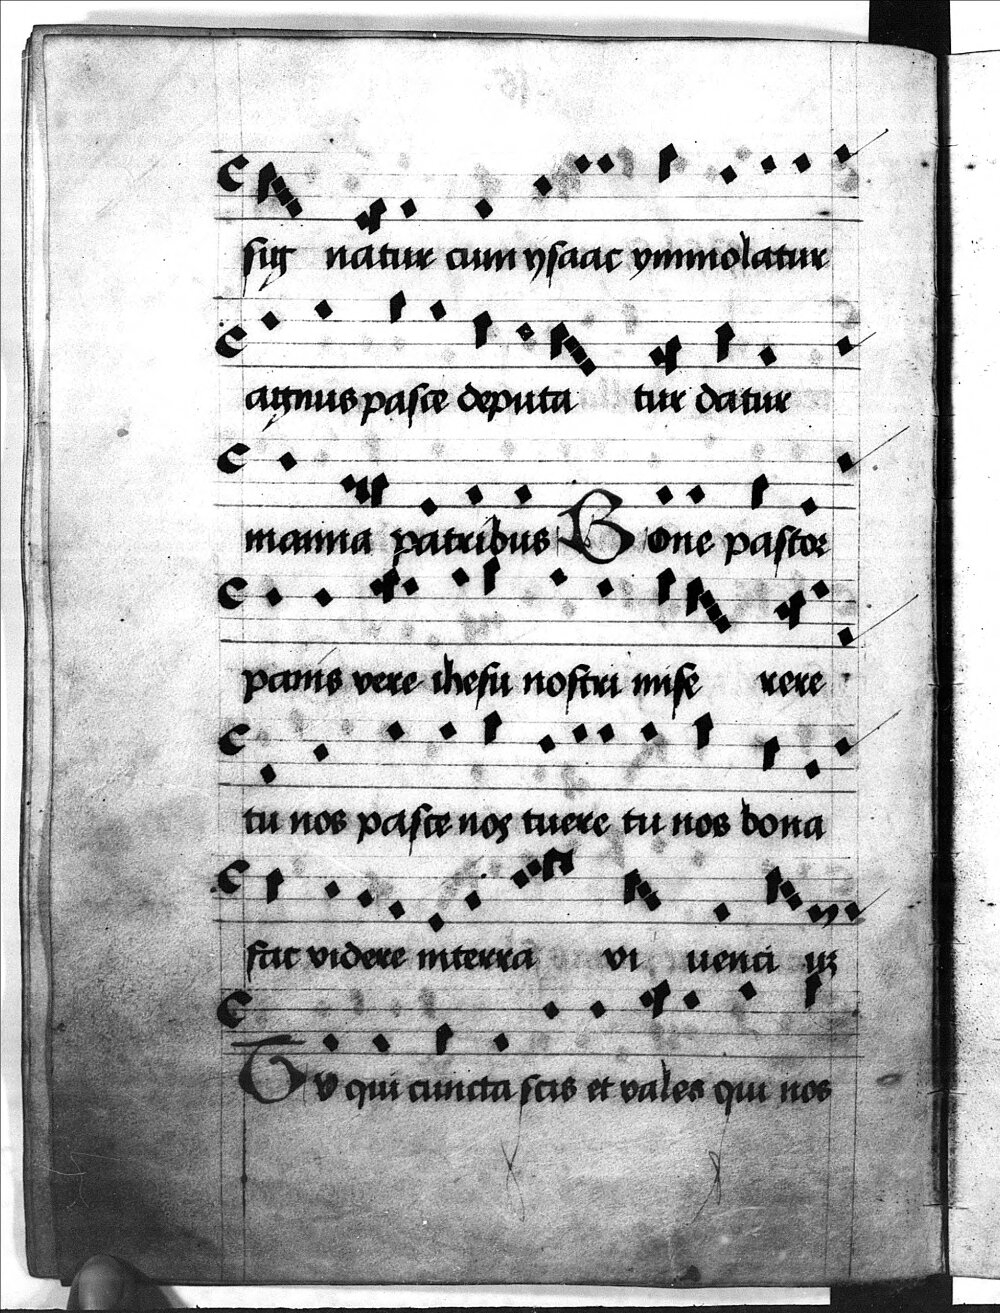 sig natur cum ysaac ymmolatur
agnus pasce deputa tur datur
manna patribus Bone pastor
panis vere ihesu nostri mise rere
tu nos pasce nos tuere tu nos bona
fac videre in terra vi uenti uz
Tv qui cuncta scis et vales qui nos